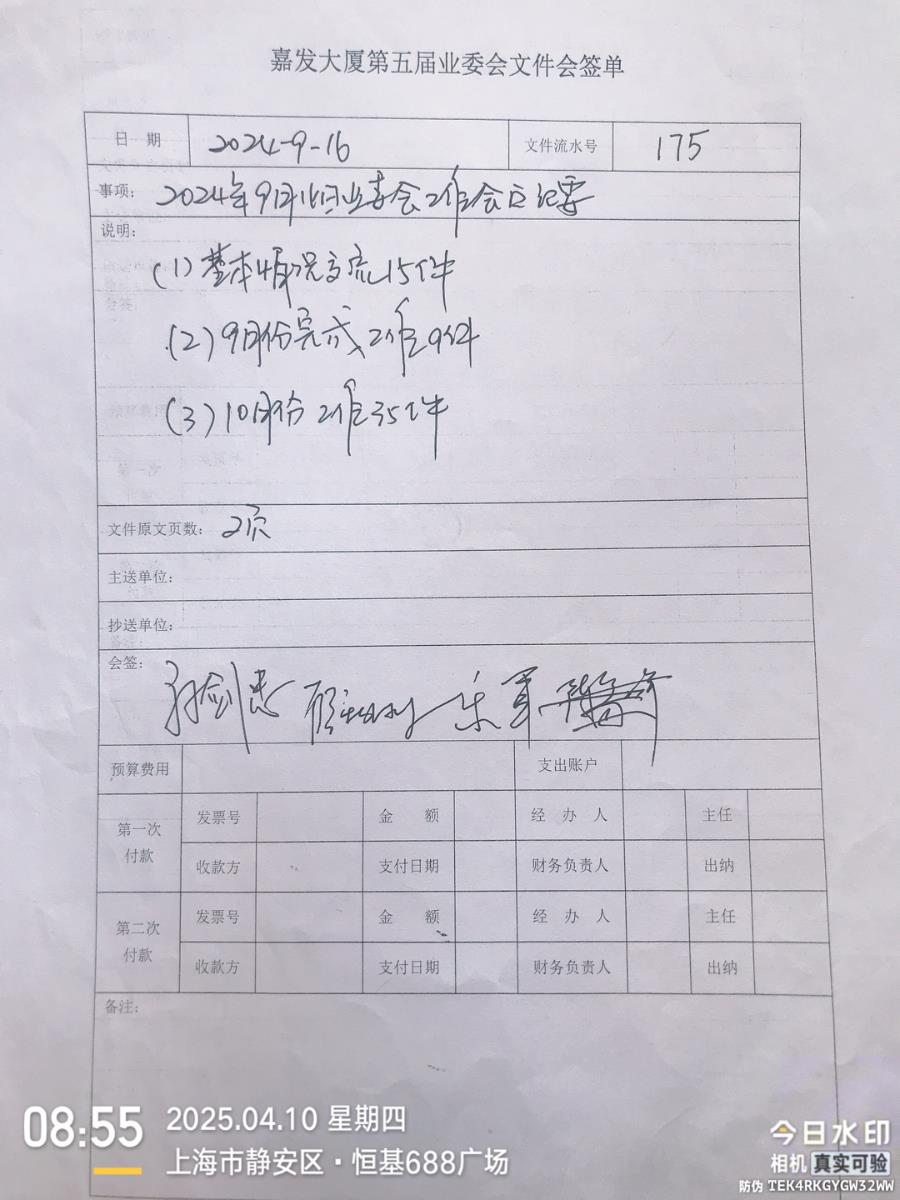 嘉发大厦第五届业委会文件会签单
日 期 2024-9-16 文件流水号 175
事项: 2024年9月16日业委会工作会议纪要
说明:
(1) 基本情况交流15件
(2) 9月份完成工作9件
(3) 10月份工作35件
文件原文页数: 2页
主送单位:
抄送单位:
会签:
预算费用 支出账户
第一次付款 发票号 金 额 经 办 人 主任
收款方 支付日期 财务负责人 出纳
第二次付款 发票号 金 额 经 办 人 主任
收款方 支付日期 财务负责人 出纳
备注:
08:55 2025.04.10 星期四
上海市静安区·恒基688广场
今日水印
相机 真实可验
防伪 TEK4RKGYGW32WW